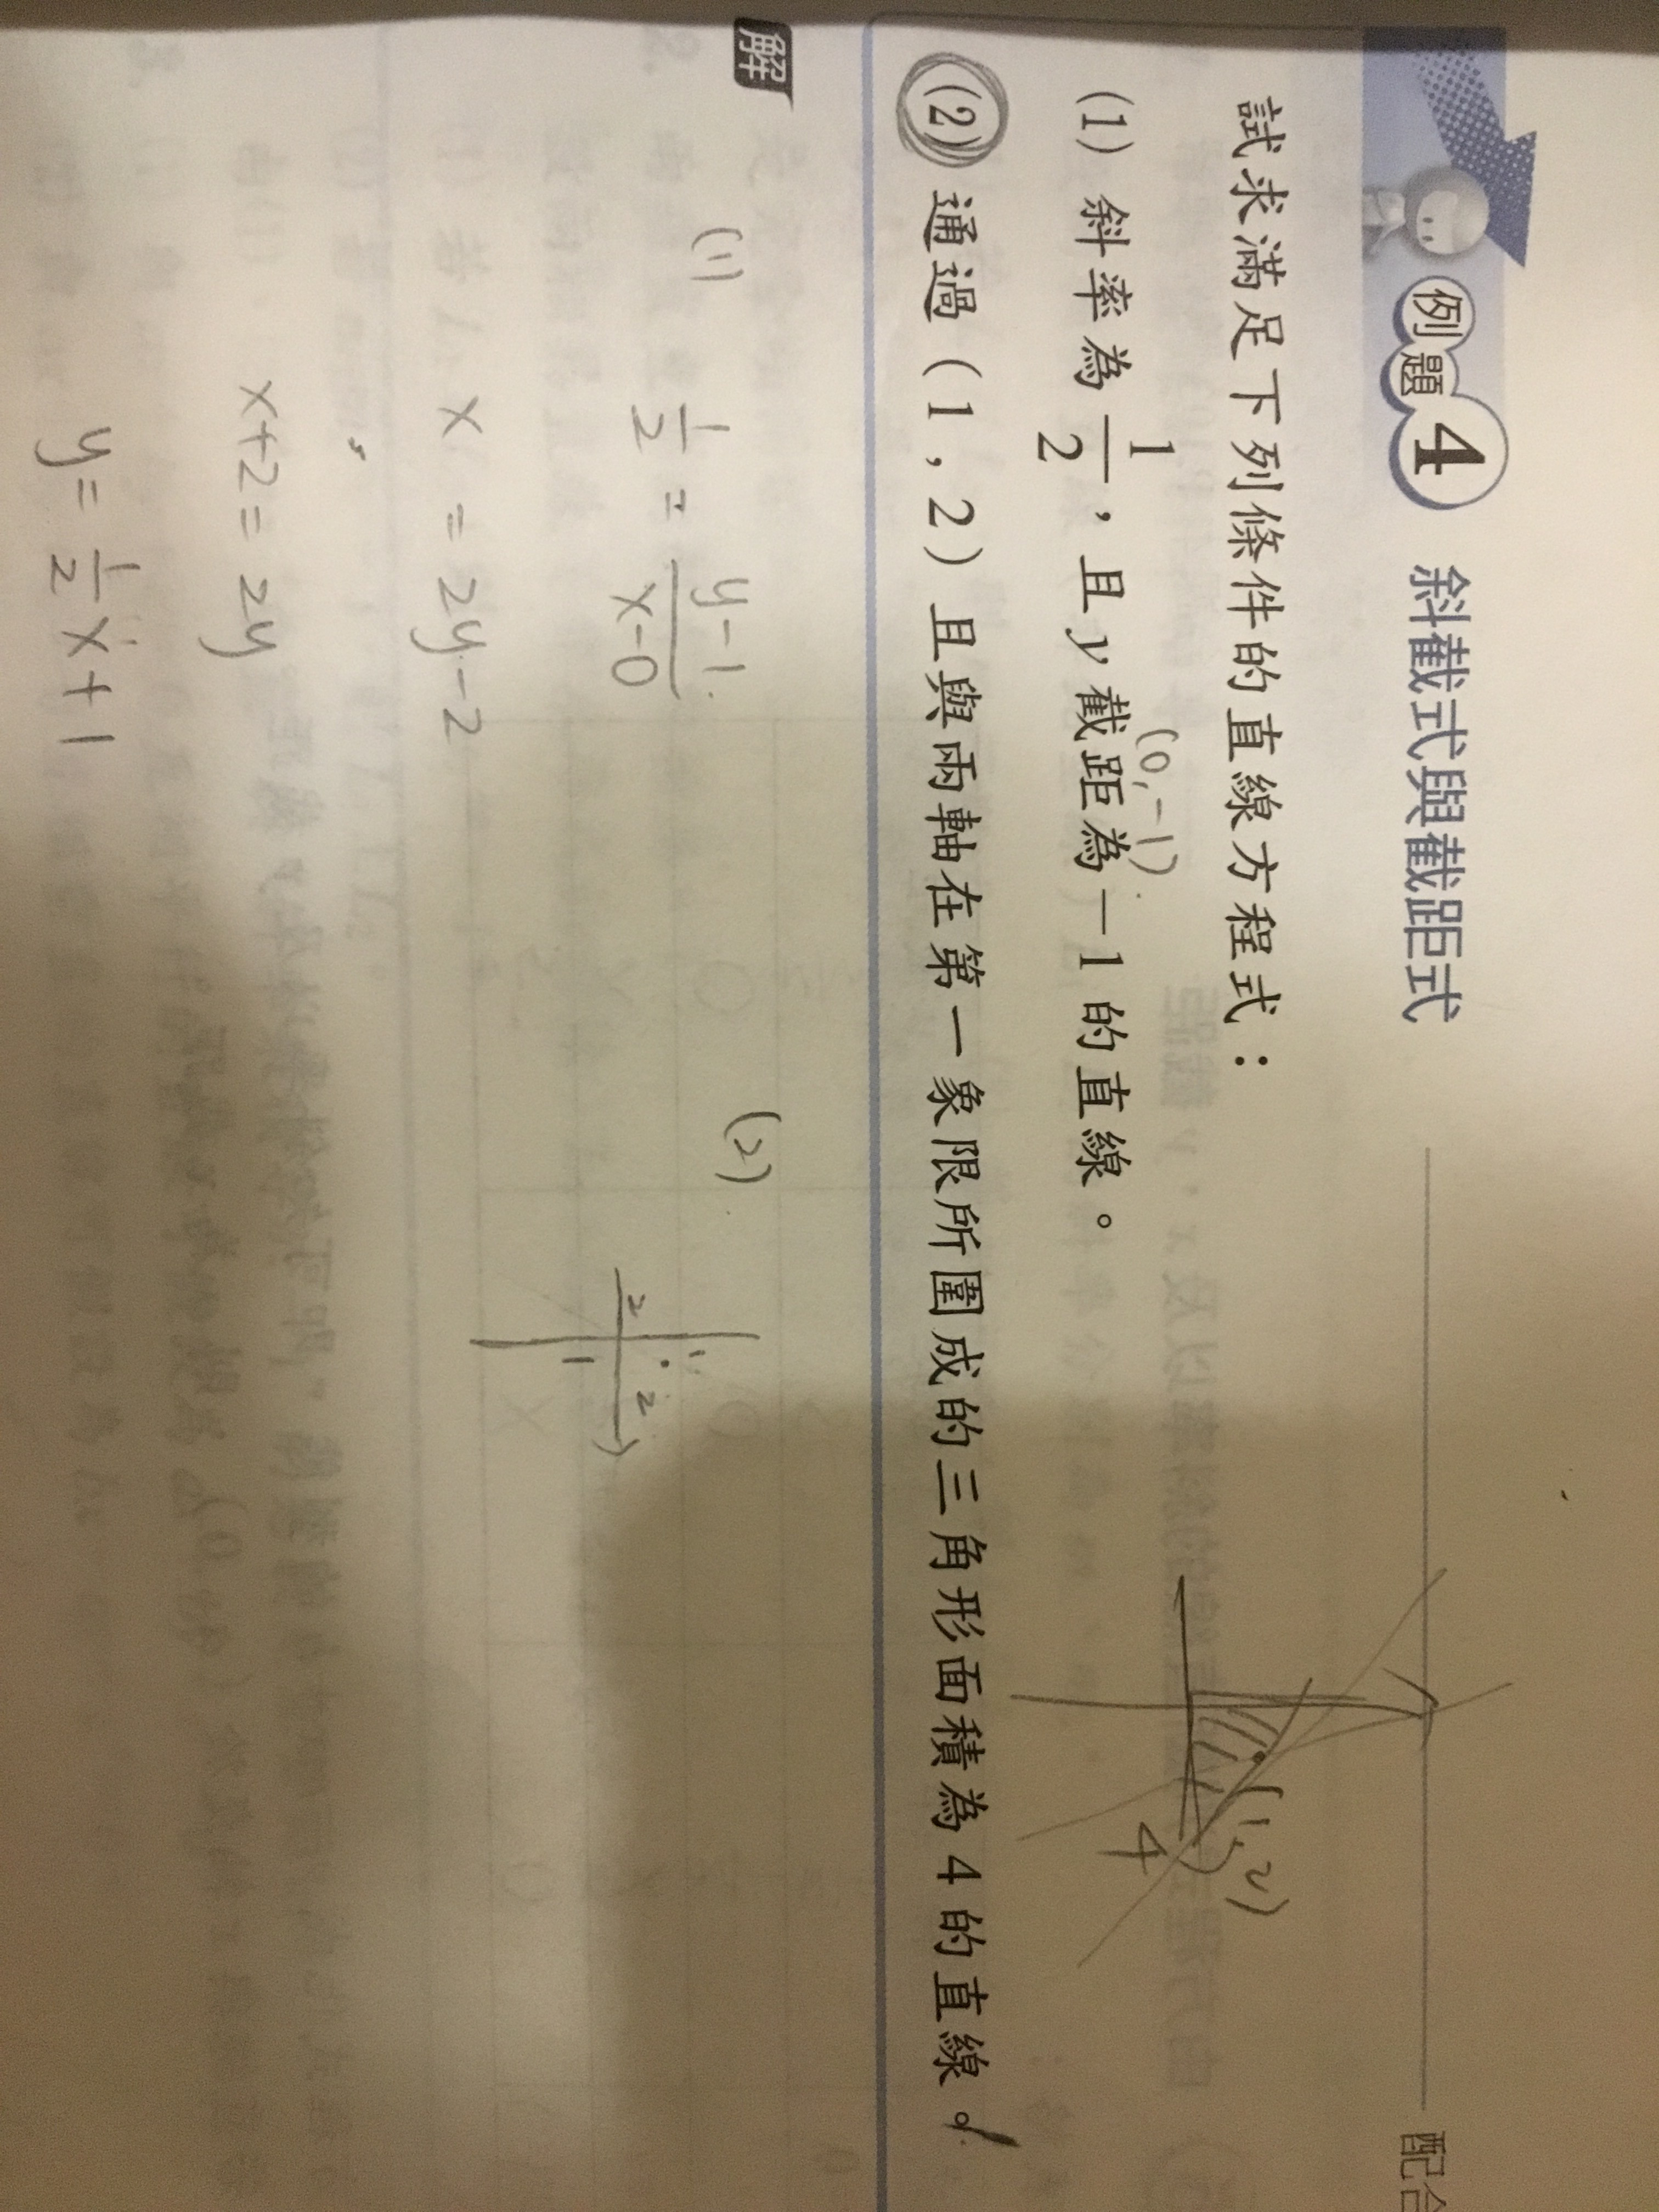 例題4 斜截式與截距式
配合
試求滿足下列條件的直線方程式：
(1) 斜率為 1/2，且 y 截距為 −1 的直線。
(0,-1)
(2) 通過 (1，2) 且與兩軸在第一象限所圍成的三角形面積為 4 的直線。
(1,2)
4
解
(1)
1/2 = (y-1)/(x-0)
x = 2y-2
x+2 = 2y
y = 1/2 x + 1
(2)
2
1
2
1